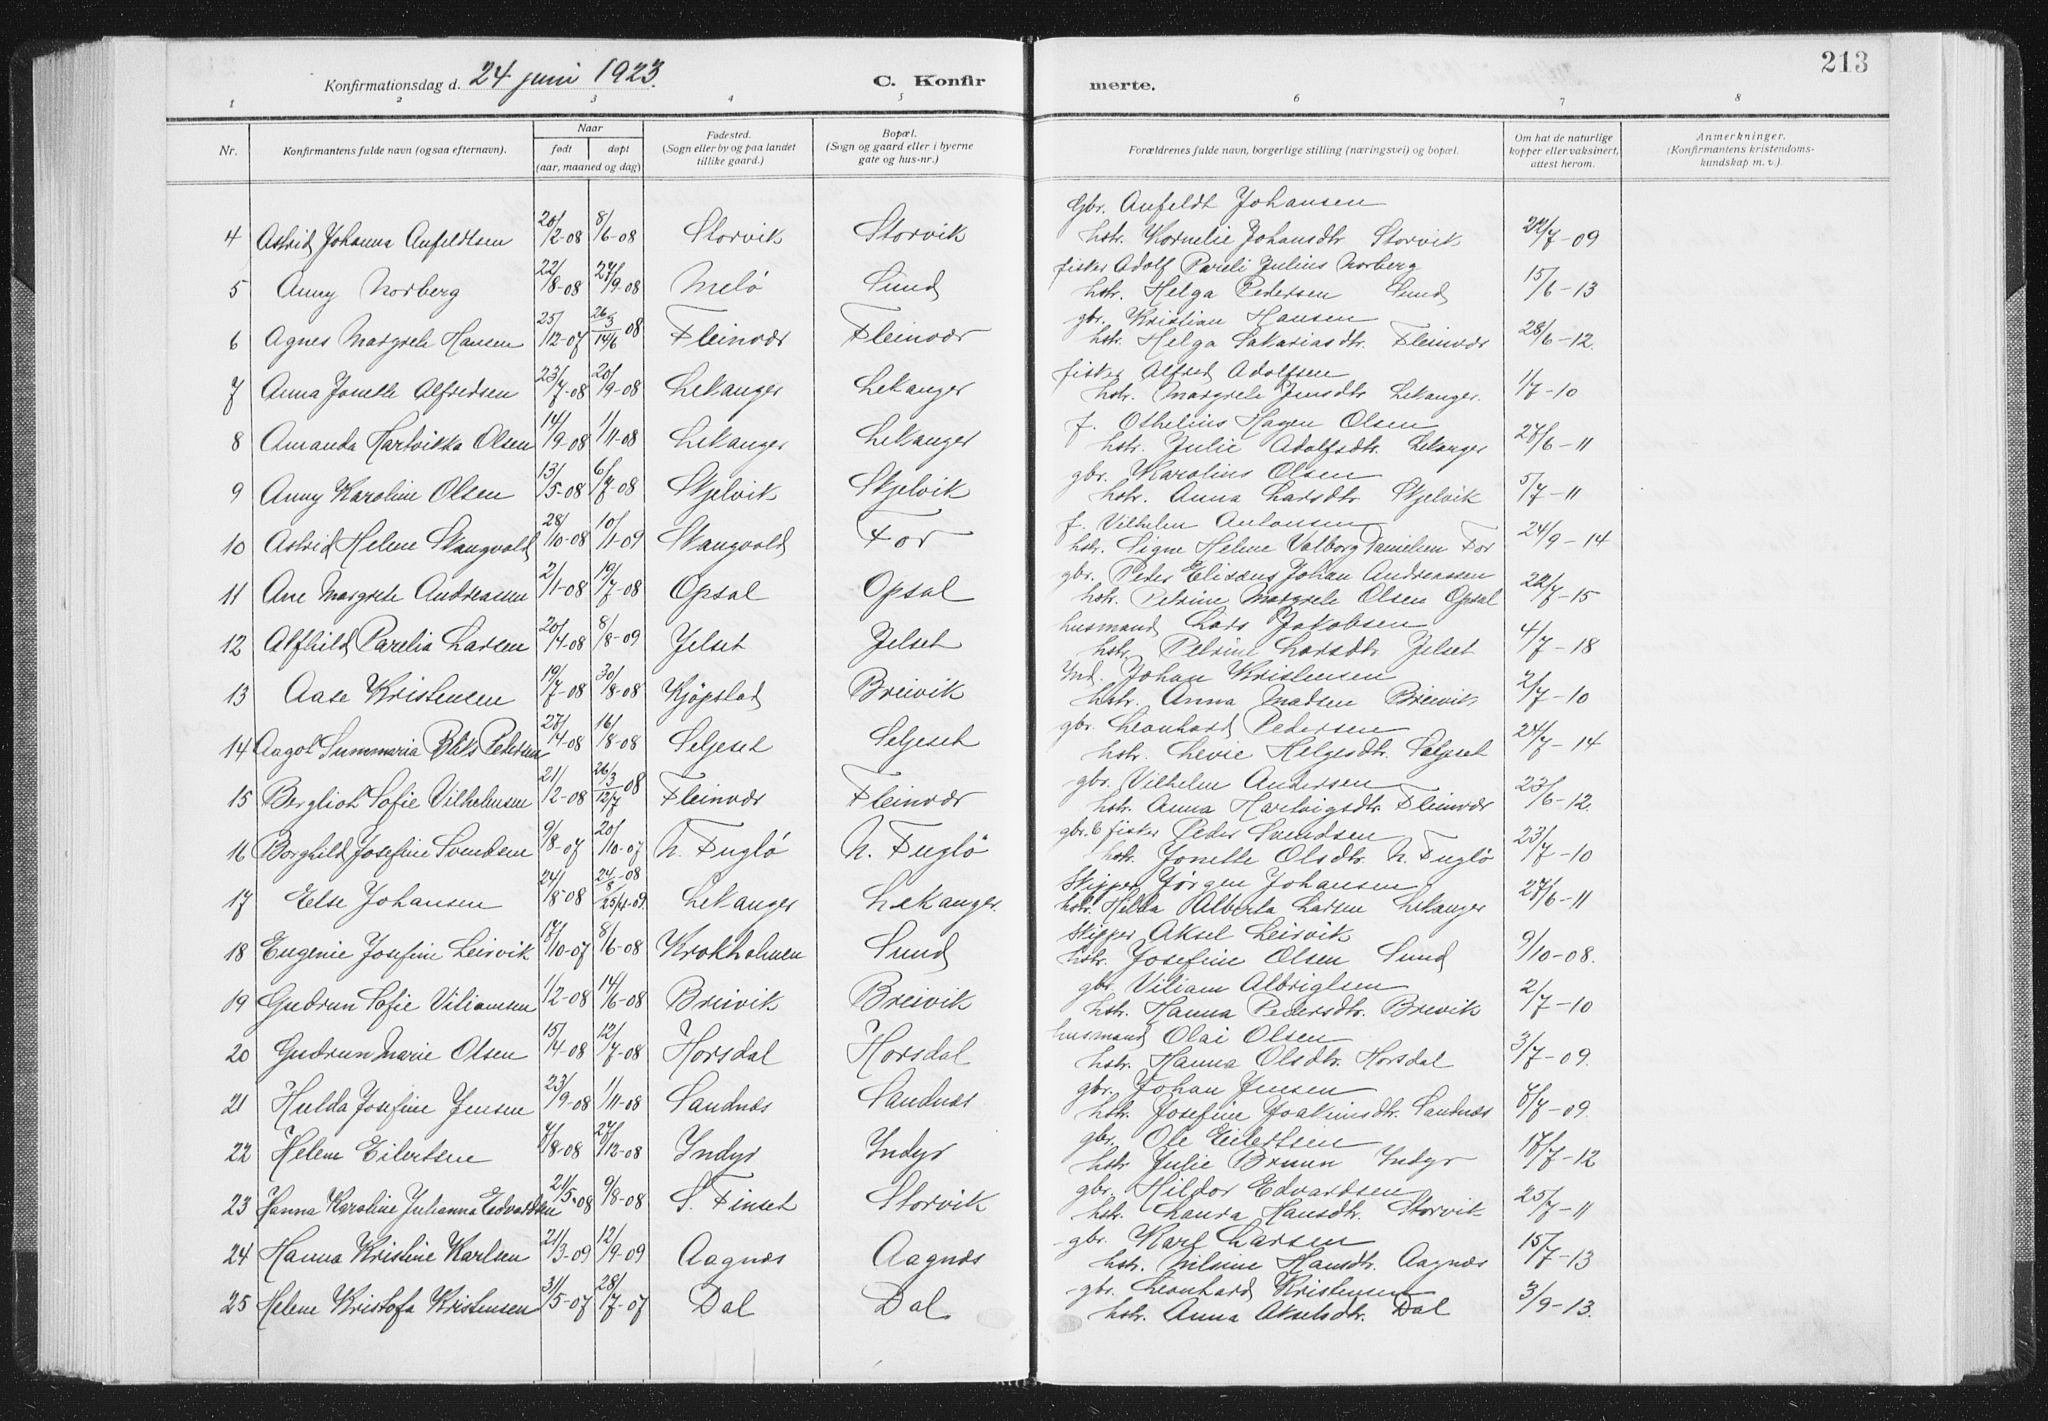 213
Konfirmationsdag d. 24 juni 1923.
C. Konfir
merte.
1 2 3 4 5 6 7 8
Nr. Konfirmantens fulde navn (ogsaa efternavn). Naar født døpt (aar, maaned og dag) Fødested. (Sogn eller by og paa landet tillike gaard.) Bopæl. (Sogn og gaard eller i byerne gate og hus-nr.) Forældrenes fulde navn, borgerlige stilling (næringsvei) og bopæl. Om hat de naturlige kopper eller vaksinert, attest herom. Anmerkninger. (Konfirmantens kristendomskundskap m. v.)
Gbr. Anfeldt Johansen
4 Astrid Johanna Anfeldtsen 20/2-08 8/6-08 Storvik Storvik hstr. Kornelie Johansdtr. Storvik 22/7-09
fisker Adolf Pareli Julius Norberg
5 Anny Norberg 22/8-08 27/9-08 Melö Sund hstr. Helga Pedersen Sund 15/6-13
gbr. Kristian Hansen
6 Agnes Margrete Hansen 25/12-07 26/3 14/6 08 Fleinvær Fleinvær hstr. Helga Sakariasdtr. Fleinvær 28/6-12.
fisker Alfred Adolfsen
7 Anna Jonette Alfredsen 23/7-08 20/9-08 Lekanger Lekanger hstr. Margrete Jensdtr. Lekanger. 1/7-10
f. Othelius Hagen Olsen
8 Amanda Hartvikka Olsen 14/9-08 1/11-08 Lekanger Lekanger hstr. Julie Adolfsdtr. Lekanger 27/6-11
gbr. Karolius Olsen
9 Anny Karoline Olsen 13/5-08 6/7-08 Skjelvik Skjelvik hstr. Anna Larsdtr. Skjelvik 5/7-11
f. Vilhelm Antonsen
10 Astrid Helene Skangvold 28/10-08 10/1-09 Skangvold For hstr. Signe Helene Valborg Danielsen For 24/9-14
gbr. Peder Elisæus Johan Andreassen
11 Ane Margrete Andreasen 2/1-08 19/7-08 Opsal Opsal hstr. Petrine Margrete Olsen Opsal 22/7-15
husmand Lars Jakobsen
12 Alfhild Parelia Larsen 20/4-08 8/8-09 Jelset Jelset hstr. Petrine Larsdtr. Jelset 4/7-18
Ind. Johan Kristensen
13 Aase Kristensen 19/7-08 30/8-08 Kjöpstad Breivik hstr. Anna Madsen Breivik 2/7-10
gbr. Leonhard Pedersen
14 Aagot Summaria Bliks Pedersen 27/4-08 16/8-08 Seljeset Seljeset hstr. Levie Helgesdtr. Seljeset 24/7-14
gbr. Vilhelm Andersen
15 Bergliot Sofie Vilhelmsen 21/2-08 26/3 12/7 08 Fleinvær Fleinvær hstr. Anna Hartvigsdtr. Fleinvær 23/6-12.
gbr. & fisker Peder Svendsen
16 Borghild Josefine Svendsen 9/8-07 20/10-07 N. Fuglö N. Fuglö hstr. Jonette Olsdtr. N. Fuglö 23/7-10
Skipper Jörgen Johansen
17 Else Johansen 24/8-08 24/8-08 25/4-09. Lekanger Lekanger. hstr. Hilda Alberta Larsen Lekanger 27/6-11
Skipper Aksel Leirvik
18 Eugenie Josefine Leirvik 17/10-07 8/6-08 Krokholmen Sund hstr. Josefine Olsen Sund 9/10-08.
gbr. Viliam Albrigtsen
19 Gudrun Sofie Viliamsen 1/2-08 14/6-08 Breivik Breivik hstr. Hanna Pedersdtr. Breivik 2/7-10
husmand Olai Olsen
20 Gudrun Marie Olsen 15/4-08 12/7-08 Horsdal Horsdal hstr. Hanna Olsdtr. Horsdal 3/7-09.
gbr. Johan Jensen
21 Hulda Josefine Jensen 23/9-08 1/11-08 Sandnæs Sandnæs hstr. Josefine Joakimsdtr. Sandnæs 8/7-09.
gbr. Ole Eilertsen
22 Helene Eilertsen /8-08 27/12-08 Indyr Indyr hstr. Julie Bruun Indyr 17/7-12
gbr. Hildor Edvardsen
23 Hanna Karoline Julianna Edvardsen 21/5-08 9/8-08 S. Finset Storvik hstr. Laura Hansdtr. Storvik 25/7-11
gbr. Karl Larsen
24 Hanna Kristine Karlsen 21/3-09 12/9-09 Aagnæs Aagnæs hstr. Nilsine Hansdtr. Aagnæs 15/7-13
gbr. Leonhard Kristensen
25 Helene Kristofa Kristensen 31/5-07 28/7-07 Dal Dal hstr. Anna Akselsdtr. Dal 3/9-13.